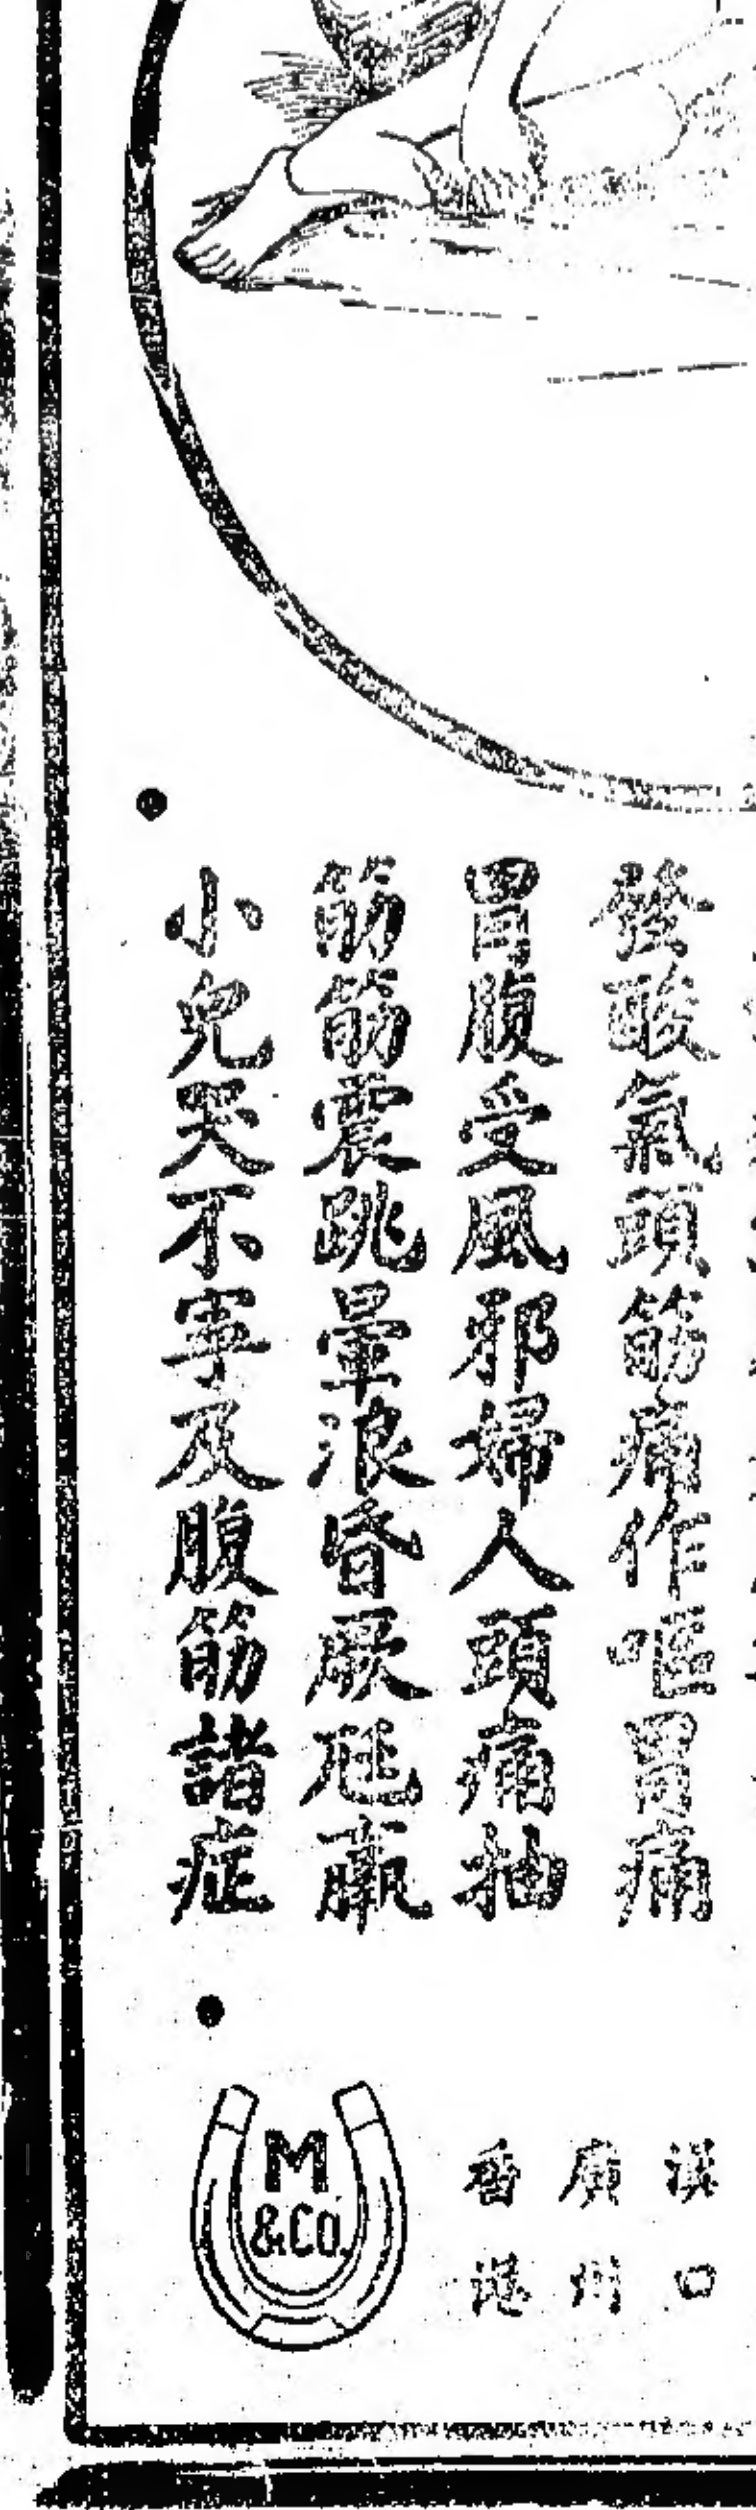 發酸氣頭筋痛作嘔胃痛
胃腹受風邪婦人頭痛抽
筋筋震跳暈浪昏厥尪羸
小兒哭不寧及腹筋諸症
漢口
廣州
香港
M
&CO.